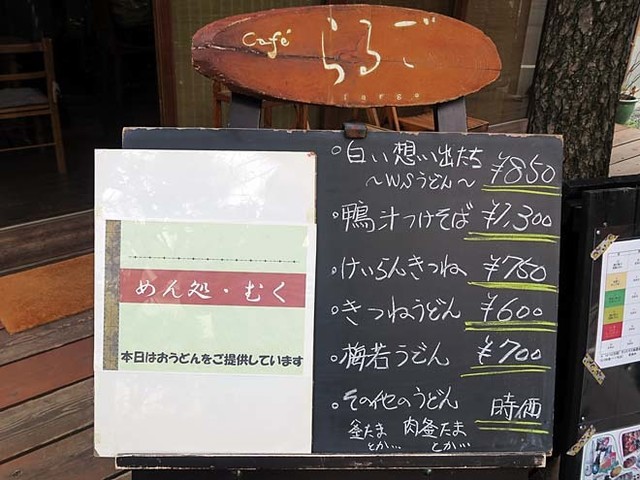 Café らるご
largo
めん処・むく
本日はおうどんをご提供しています
○白い想い出たち ¥850
～W.Sうどん～
・鴨汁つけそば ¥1,300
・けいらんきつね ¥750
・きつねうどん ¥600
・梅若うどん ¥700
・その他のうどん 時価
釜たま 肉釜たま
とか… とか…